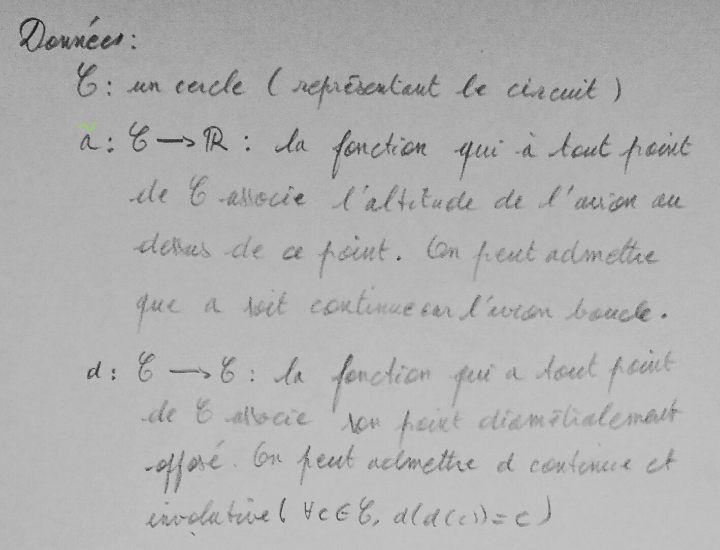 Données:
C: un cercle (représentant le circuit)
ã: C → R : la fonction qui à tout point
de C associe l'altitude de l'avion au
dessus de ce point. On peut admettre
que a soit continue car l'avion boucle.
d: C → C : la fonction qui a tout point
de C associe son point diamétralement
opposé. On peut admettre d continue et
involutive (∀c∈C, d(d(c))=c)